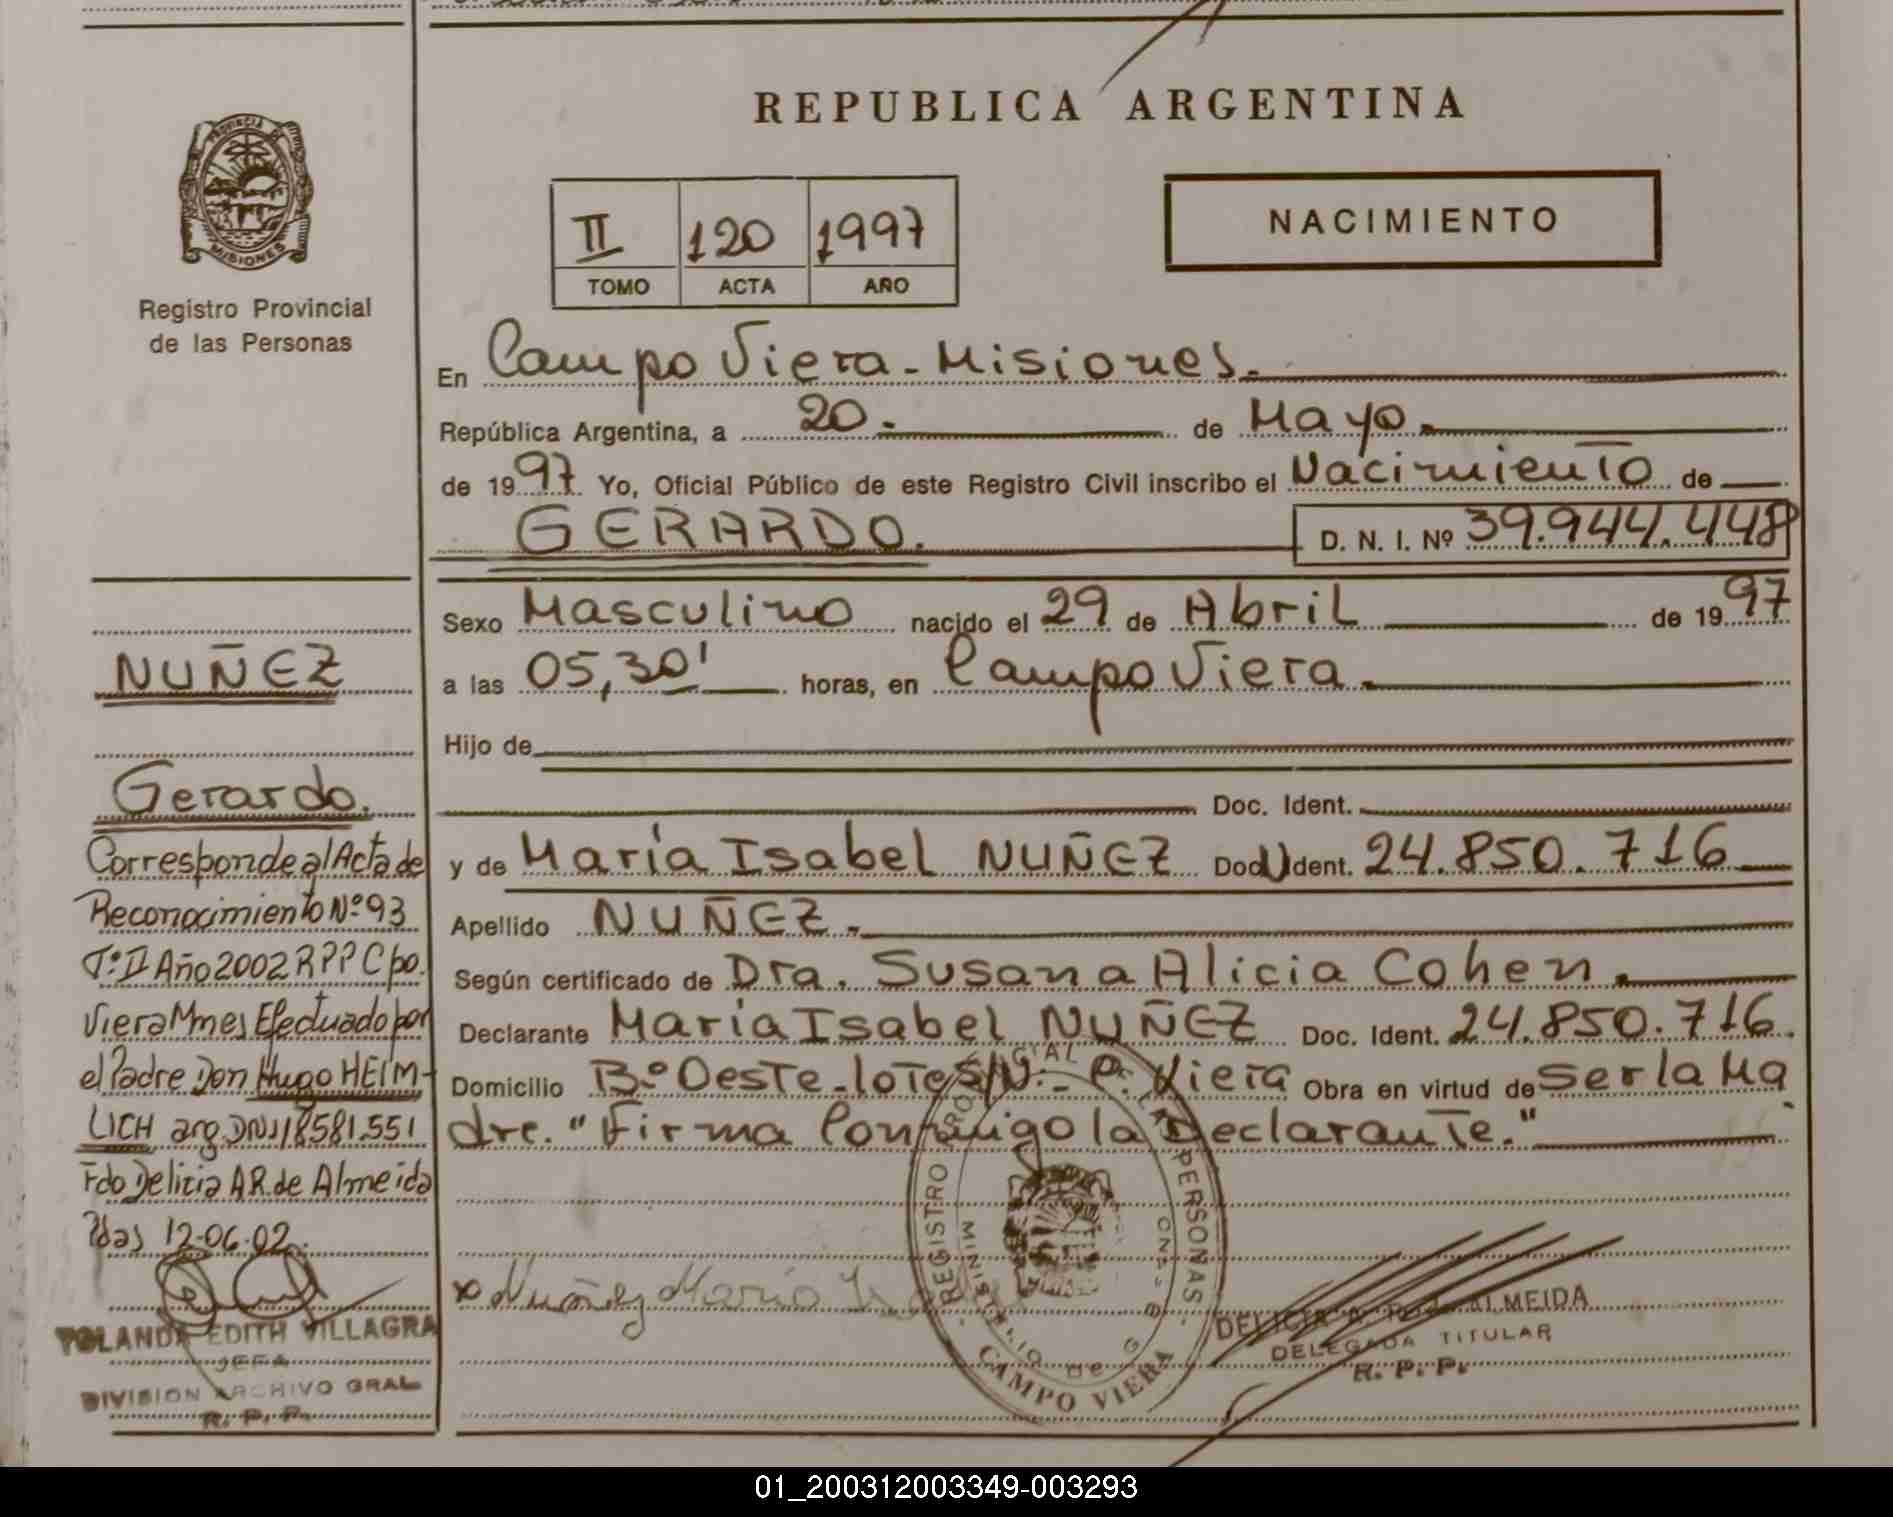 REPUBLICA ARGENTINA
PROVINCIA DE
MISIONES
Registro Provincial
de las Personas
II 120 1997
TOMO ACTA AÑO
NACIMIENTO
En Campo Viera - Misiones.
República Argentina, a 20. de Mayo.
de 1997. Yo, Oficial Público de este Registro Civil inscribo el Nacimiento de
GERARDO. D. N. I. Nº 39.944.448
Sexo Masculino nacido el 29 de Abril de 1997
a las 05,30' horas, en Campo Viera.
Hijo de
Doc. Ident.
y de María Isabel NUÑEZ Doc. Ident. 24.850.716
Apellido NUÑEZ.
Según certificado de Dra. Susana Alicia Cohen.
Declarante María Isabel NUÑEZ Doc. Ident. 24.850.716.
Domicilio Bº Oeste-lote S/N.- C. Viera Obra en virtud de ser la Ma
dre. "Firma Conmigo la Declarante."
NUÑEZ
Gerardo.
Corresponde al Acta de
Reconocimiento Nº 93
Tº II Año 2002 RPP Cpo.
Viera Mnes Efectuado por
el Padre Don Hugo HEIM-
LICH arg. DNI 18581.551
Fdo Delicia A R. de Almeida
Pdas 12-06-02.
YOLANDA EDITH VILLAGRA
JEFA
DIVISION ARCHIVO GRAL
R. P. P.
x Nuñez María
REGISTRO PROVINCIAL DE LAS PERSONAS
MINISTERIO DE G
CAMPO VIERA
DELICIA A. ALMEIDA
DELEGADA TITULAR
R. P. P.
01_200312003349-003293